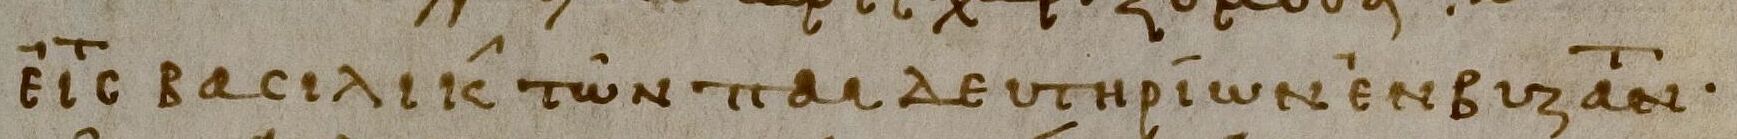 εἰς βασιλικ τῶν παιδευτηρίων ἐν βυζαν·